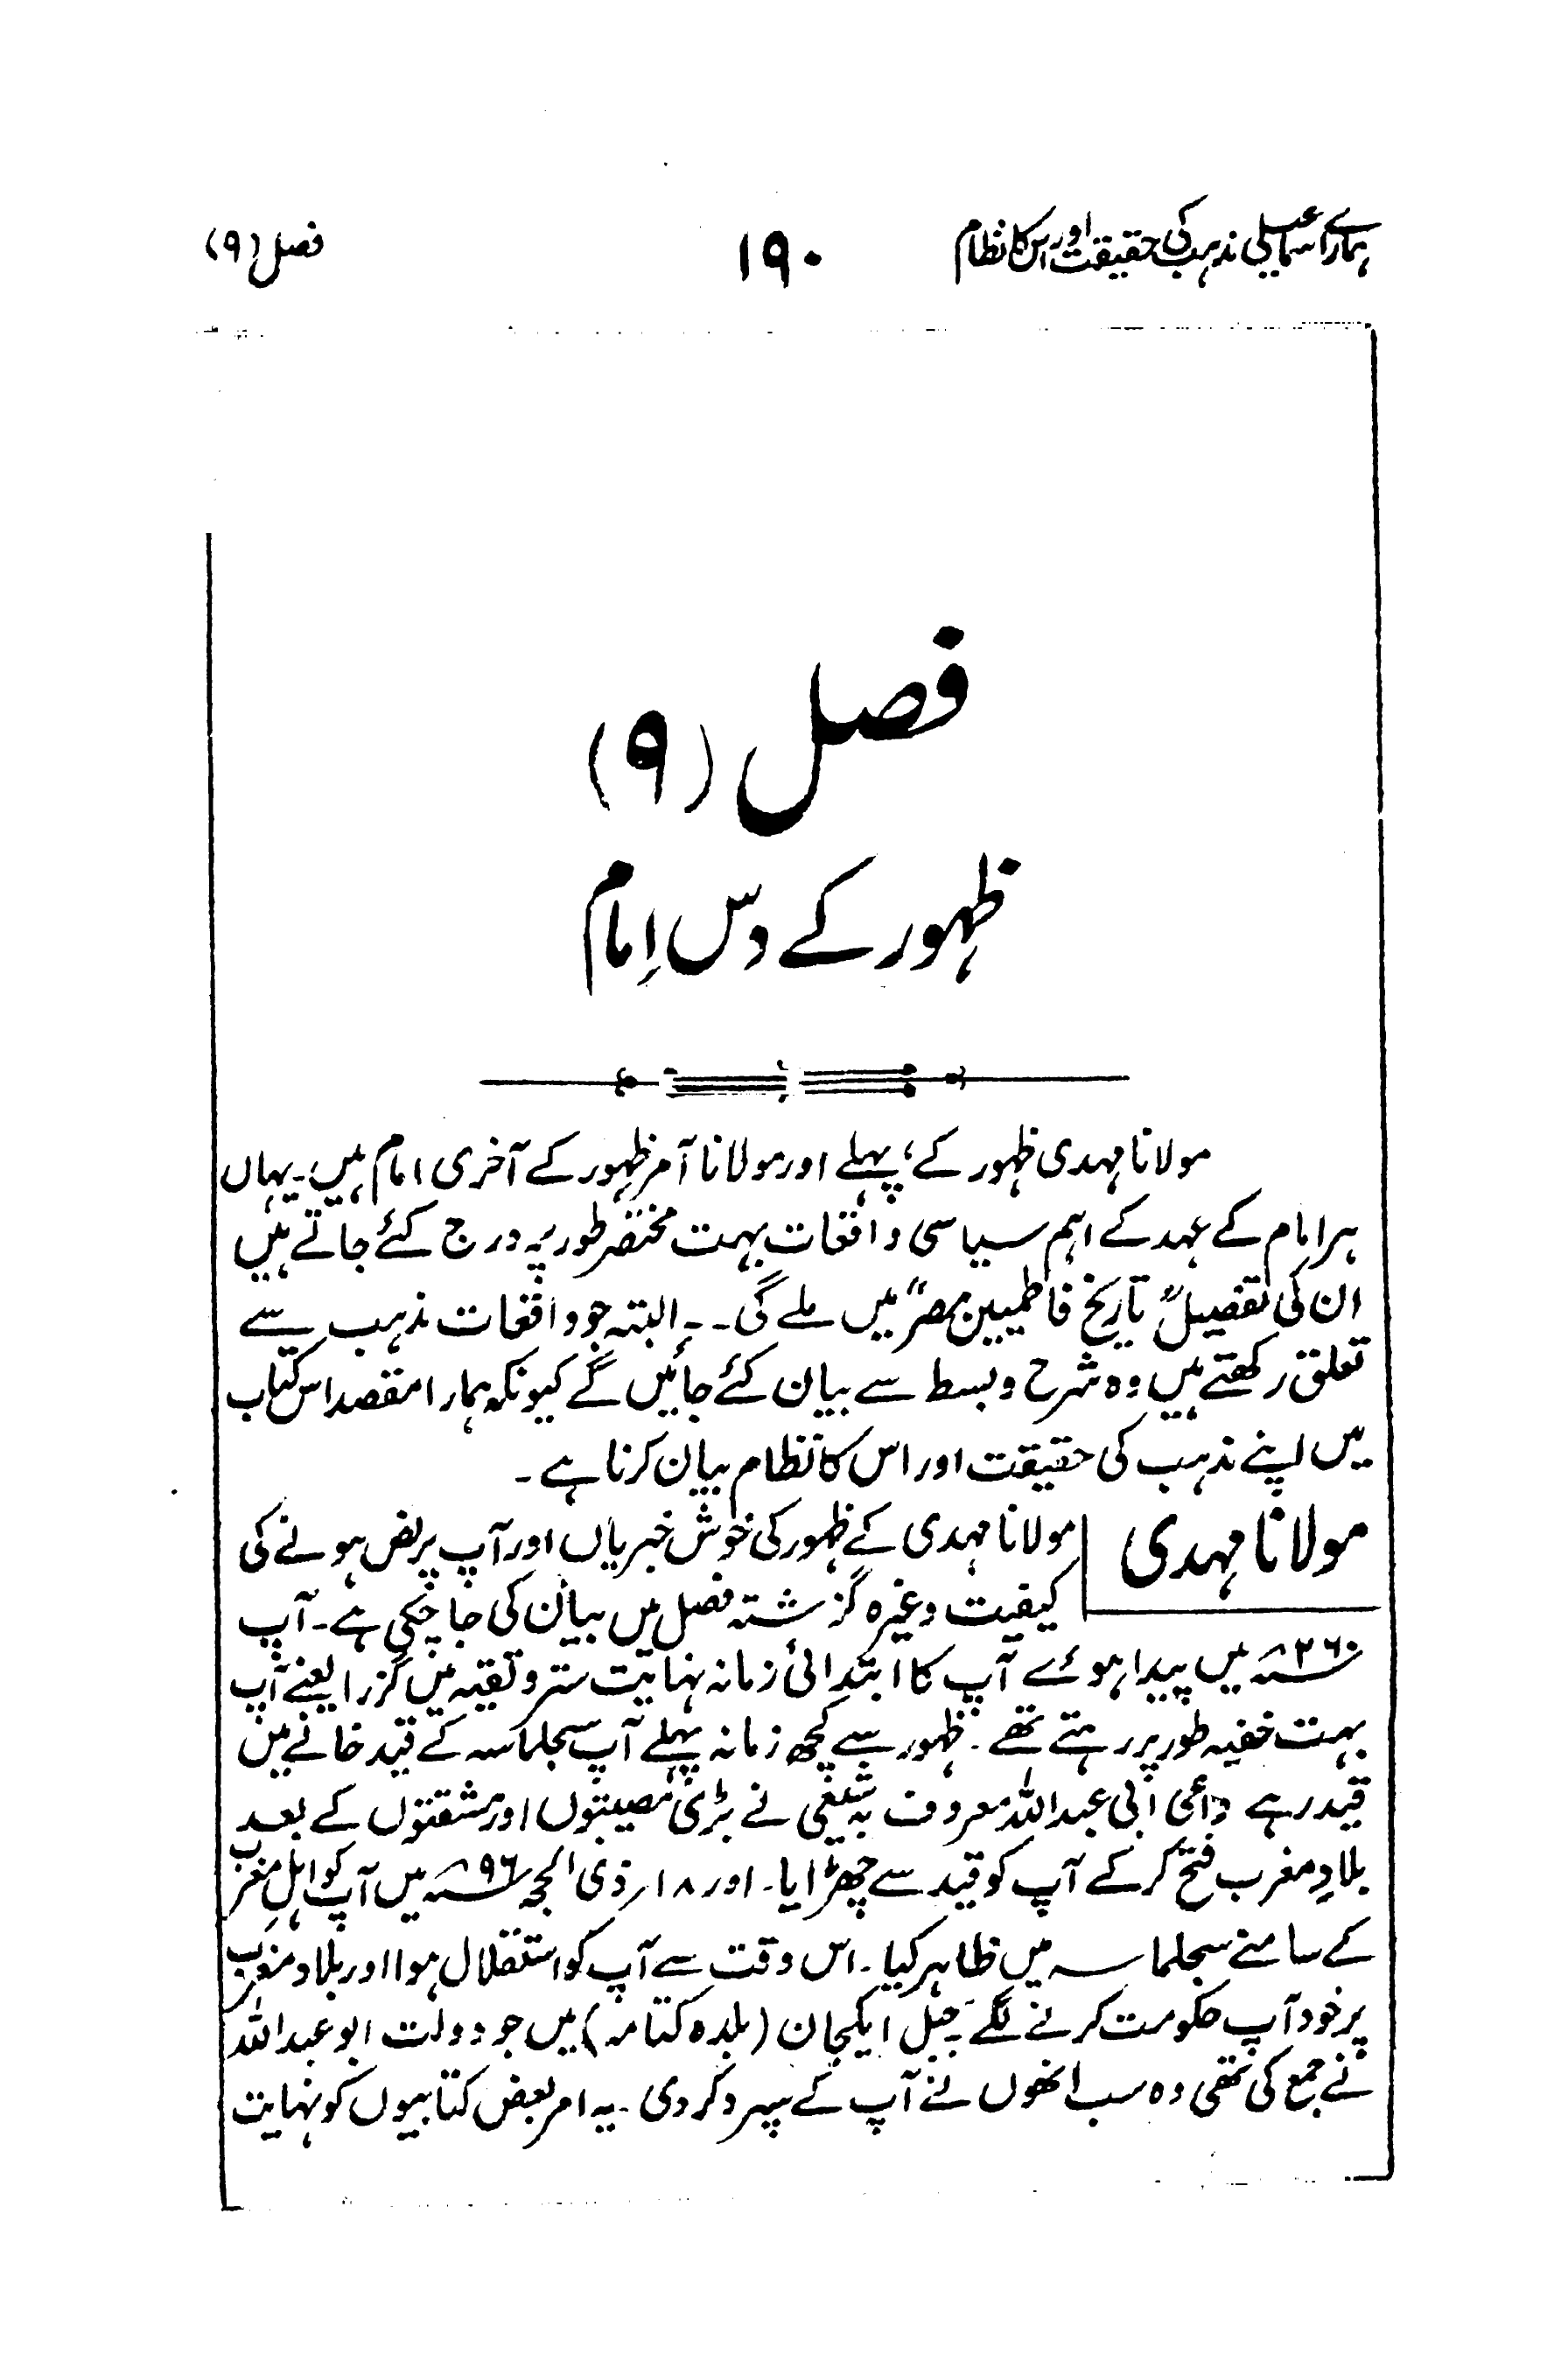 ہمارے اسماعیلی مذہب کی حقیقت اور اس کا نظام ۱۹۰ فصل (۹)
فصل (۹)
ظہور کے دس اِمام
مولانا مہدی ظہور کے، پہلے اور مولانا آمر ظہور کے آخری امام ہیں۔ یہاں
ہر امام کے عہد کے اہم سیاسی واقعات بہت مختصر طور پہ درج کئے جاتے ہیں
ان کی تفصیل "تاریخ فاطمیین مصر" میں ملے گی۔۔ البتہ جو واقعات مذہب سے
تعلق رکھتے ہیں وہ شرح و بسط سے بیان کئے جائیں گے کیونکہ ہمارا مقصد اس کتاب
میں اپنے مذہب کی حقیقت اور اس کا نظام بیان کرنا ہے۔
مولانا مہدی مولانا مہدی کے ظہور کی خوش خبریاں اور آپ پر نص ہونے کی
کیفیت وغیرہ گزشتہ فصل میں بیان کی جا چکی ہے۔ آپ
۲۶۰ھ میں پیدا ہوئے آپ کا ابتدائی زمانہ نہایت ستر و تقیہ میں گزرا یعنے آپ
بہت خفیہ طور پر رہتے تھے۔ ظہور سے کچھ زمانہ پہلے آپ سجلماسہ کے قید خانے میں
قید رہے داعی ابی عبداللہ معروف بہ شیعی نے بڑی مصیبتوں اور مشقتوں کے بعد
بلادِ مغرب فتح کر کے آپ کو قید سے چھڑایا۔ اور ۱۸؍ ذی الحجہ ۹۶ھ میں آپ کو اہلِ مغرب
کے سامنے سجلماسہ میں ظاہر کیا۔ اس وقت سے آپ کو استقلال ہوا اور بلاد مغرب
پر خود آپ حکومت کرنے لگے۔ جبل ایکجان (بلدہ کتامہ) میں جو دولت ابو عبداللہ
نے جمع کی تھی وہ سب انھوں نے آپ کے سپرد کر دی۔ یہ امر بعض کتابیوں کو نہایت